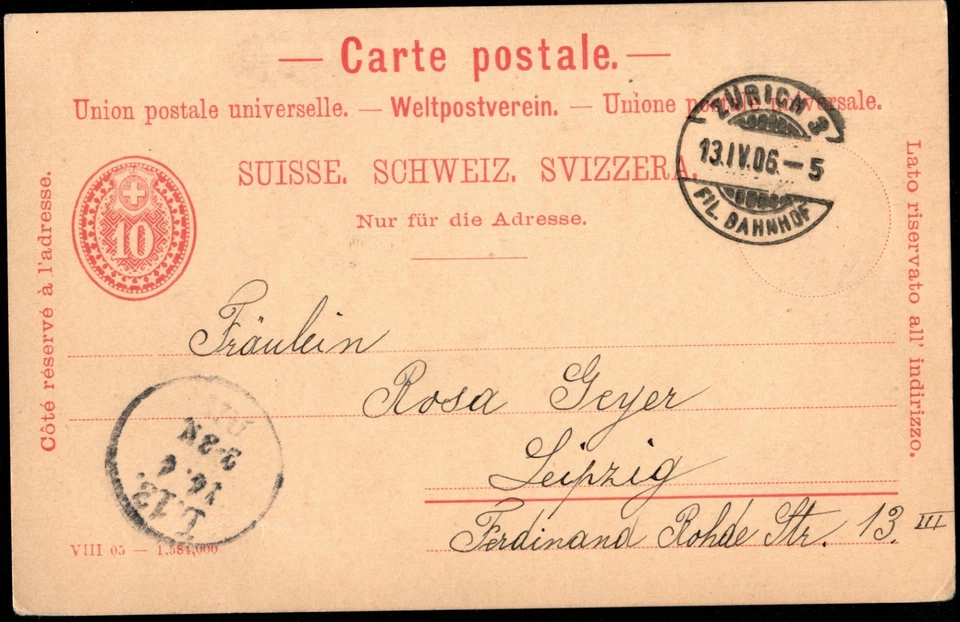 — Carte postale. —
Union postale universelle. — Weltpostverein. — Unione postale universale.
SUISSE. SCHWEIZ. SVIZZERA.
Nur für die Adresse.
Côté réservé à l'adresse.
Lato riservato all' indirizzo.
10
ZÜRICH 3
13.IV.06.–5
FIL. BAHNHOF
Fräulein
Rosa Geyer
Leipzig
Ferdinand Rohde Str. 13 III
L. 13.
14.4
2-3N
VIII 05 — 1.584,000